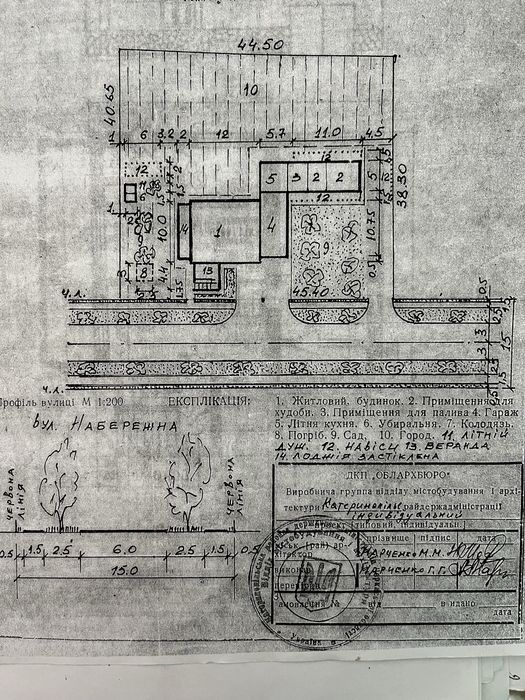 44.50
40.65
10
1 6 3.2 2 12 5.7 11.0 4.5
12
12
5 3 2 2
12
38.30
11
6
14
1
4
9
10.0
10.75
8
4.4
13
1.75
45.40
0.5
Ч.Л.
Ч.Л.
Профіль вулиці М 1:200
ЕКСПЛІКАЦІЯ:
1. Житловий будинок. 2. Приміщення для
худоби. 3. Приміщення для палива 4. Гараж
5. Літня кухня. 6. Убиральня. 7. Колодязь.
8. Погріб. 9. Сад. 10. Город. 11. ЛІТНІЙ
ДУШ. 12. НАВІСИ 13. ВЕРАНДА
14. ЛОДЖІЯ ЗАСТІКЛЕНА
ВУЛ. НАБЕРЕЖНА
ЧЕРВОНА ЛІНІЯ
ЧЕРВОНА ЛІНІЯ
0.5 1.5 2.5 6.0 2.5 1.5 0.5
15.0
ДКП „ОБЛАРХБЮРО"
Виробнича группа відділу містобудування і архі-
тектури Катеринопільс райдержадміністрації
індивідуальний
проект (типовий, індивідуальн.)
прізвище підпис дата
Марченко М.М.
виконав Марченко Г.Г.
перевірив
Замовлення № від видано
дата